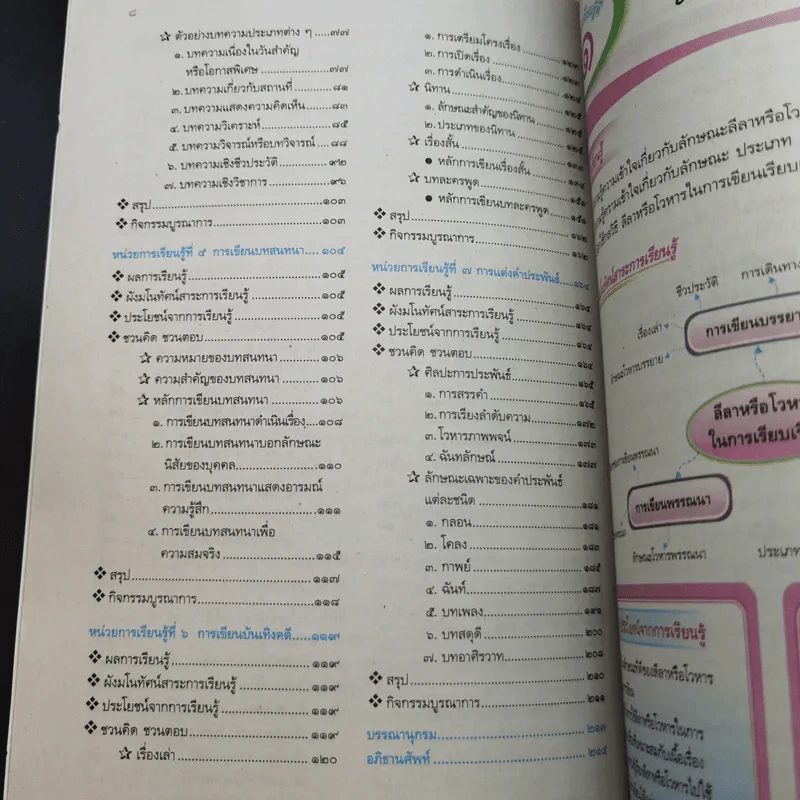 ๘
☆ ตัวอย่างบทความประเภทต่าง ๆ .....๗๗
๑. บทความเนื่องในวันสำคัญ
หรือโอกาสพิเศษ ........................๗๗
๒. บทความเกี่ยวกับสถานที่ .............๘๑
๓. บทความแสดงความคิดเห็น........๘๓
๔. บทความวิเคราะห์.....................๘๕
๕. บทความวิจารณ์หรือบทวิจารณ์ .....๘๘
๖. บทความเชิงชีวประวัติ ...............๙๒
๗. บทความเชิงวิชาการ..................๙๖
❖ สรุป ..................................................๑๐๓
❖ กิจกรรมบูรณาการ............................๑๐๓
หน่วยการเรียนรู้ที่ ๕ การเขียนบทสนทนา.... ๑๐๔
❖ ผลการเรียนรู้....................................๑๐๕
❖ ผังมโนทัศน์สาระการเรียนรู้ ..................๑๐๕
❖ ประโยชน์จากการเรียนรู้......................๑๐๕
❖ ชวนคิด ชวนตอบ .............................๑๐๕
☆ ความหมายของบทสนทนา............๑๐๖
☆ ความสำคัญของบทสนทนา ...........๑๐๖
☆ หลักการเขียนบทสนทนา..............๑๐๖
๑. การเขียนบทสนทนาดำเนินเรื่อง....๑๐๘
๒. การเขียนบทสนทนาบอกลักษณะ
นิสัยของบุคคล........................๑๑๐
๓. การเขียนบทสนทนาแสดงอารมณ์
ความรู้สึก ..............................๑๑๑
๔. การเขียนบทสนทนาเพื่อ
ความสมจริง ..........................๑๑๕
❖ สรุป..................................................๑๑๗
❖ กิจกรรมบูรณาการ............................๑๑๘
หน่วยการเรียนรู้ที่ ๖ การเขียนบันเทิงคดี.....๑๑๗
❖ ผลการเรียนรู้ ...................................๑๑๙
❖ ผังมโนทัศน์สาระการเรียนรู้ ..................๑๑๙
❖ ประโยชน์จากการเรียนรู้ ....................๑๑๙
❖ ชวนคิด ชวนตอบ ............................๑๑๙
☆ เรื่องเล่า ....................................๑๒๐
๑. การเตรียมโครงเรื่อง ..................๑๒๓
๒. การเปิดเรื่อง
๓. การดำเนินเรื่อง ........................๑๒๔
☆ นิทาน
๑. ลักษณะสำคัญของนิทาน ............๑๒๕
๒. ประเภทของนิทาน ....................๑๒๕
☆ เรื่องสั้น
● หลักการเขียนเรื่องสั้น
☆ บทละครพูด
● หลักการเขียนบทละครพูด ...........๑๕๑
❖ สรุป ..................................................๑๖๒
❖ กิจกรรมบูรณาการ............................๑๖๒
หน่วยการเรียนรู้ที่ ๗ การแต่งคำประพันธ์.....๑๖๔
❖ ผลการเรียนรู้....................................๑๖๔
❖ ผังมโนทัศน์สาระการเรียนรู้ ..................๑๖๔
❖ ประโยชน์จากการเรียนรู้ ....................๑๖๔
❖ ชวนคิด ชวนตอบ .............................๑๖๔
☆ ศิลปะการประพันธ์......................๑๖๕
๑. การสรรคำ ..............................๑๖๕
๒. การเรียงลำดับความ..................๑๗๒
๓. โวหารภาพพจน์ .......................๑๗๓
๔. ฉันทลักษณ์ ............................๑๗๗
☆ ลักษณะเฉพาะของคำประพันธ์
แต่ละชนิด .................................๑๘๑
๑. กลอน ....................................๑๘๑
๒. โคลง .....................................๑๘๓
๓. กาพย์ ....................................๑๘๕
๔. ฉันท์ .....................................๑๘๗
๕. บทเพลง.................................๑๙๑
๖. บทสดุดี .................................๒๐๐
๗. บทอาศิรวาท...........................๒๐๘
❖ สรุป..................................................๒๑๐
❖ กิจกรรมบูรณาการ............................๒๑๑
บรรณานุกรม............................................๒๑๓
อภิธานศัพท์ ............................................๒๑๔
ชีวประวัติ
การเดินทาง
เรื่องเล่า
การเขียนบรรยาย
ลีลาหรือโวหาร
การเขียนพรรณนา
ลักษณะโวหารพรรณนา
ประเภท